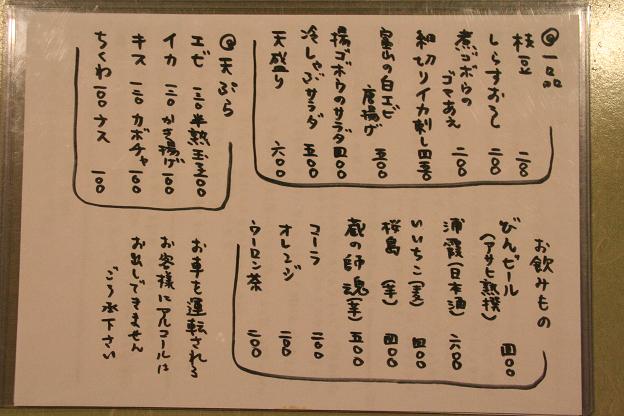 @一品
枝豆 二八〇
しらすおろし 二八〇
煮ゴボウのゴマあえ 二八〇
細切りイカ刺し 四五〇
富山の白エビ唐揚げ 五〇〇
揚ゴボウのサラダ 四〇〇
冷しゃぶサラダ 五〇〇
天盛り 六〇〇
@天ぷら
エビ 二三〇 半熟玉子 一〇〇
イカ 一三〇 かき揚げ 一〇〇
キス 一三〇 カボチャ 一〇〇
ちくわ 一〇〇 ナス 一〇〇
お飲みもの
びんビール(アサヒ熟撰) 四〇〇
浦霞(日本酒) 六〇〇
いいちこ(麦) 四〇〇
桜島(芋) 四〇〇
蔵の師魂(芋) 五〇〇
コーラ 二〇〇
オレンジ 二〇〇
ウーロン茶 二〇〇
お車を運転される
お客様にアルコールは
お出しできません
ご了承下さい